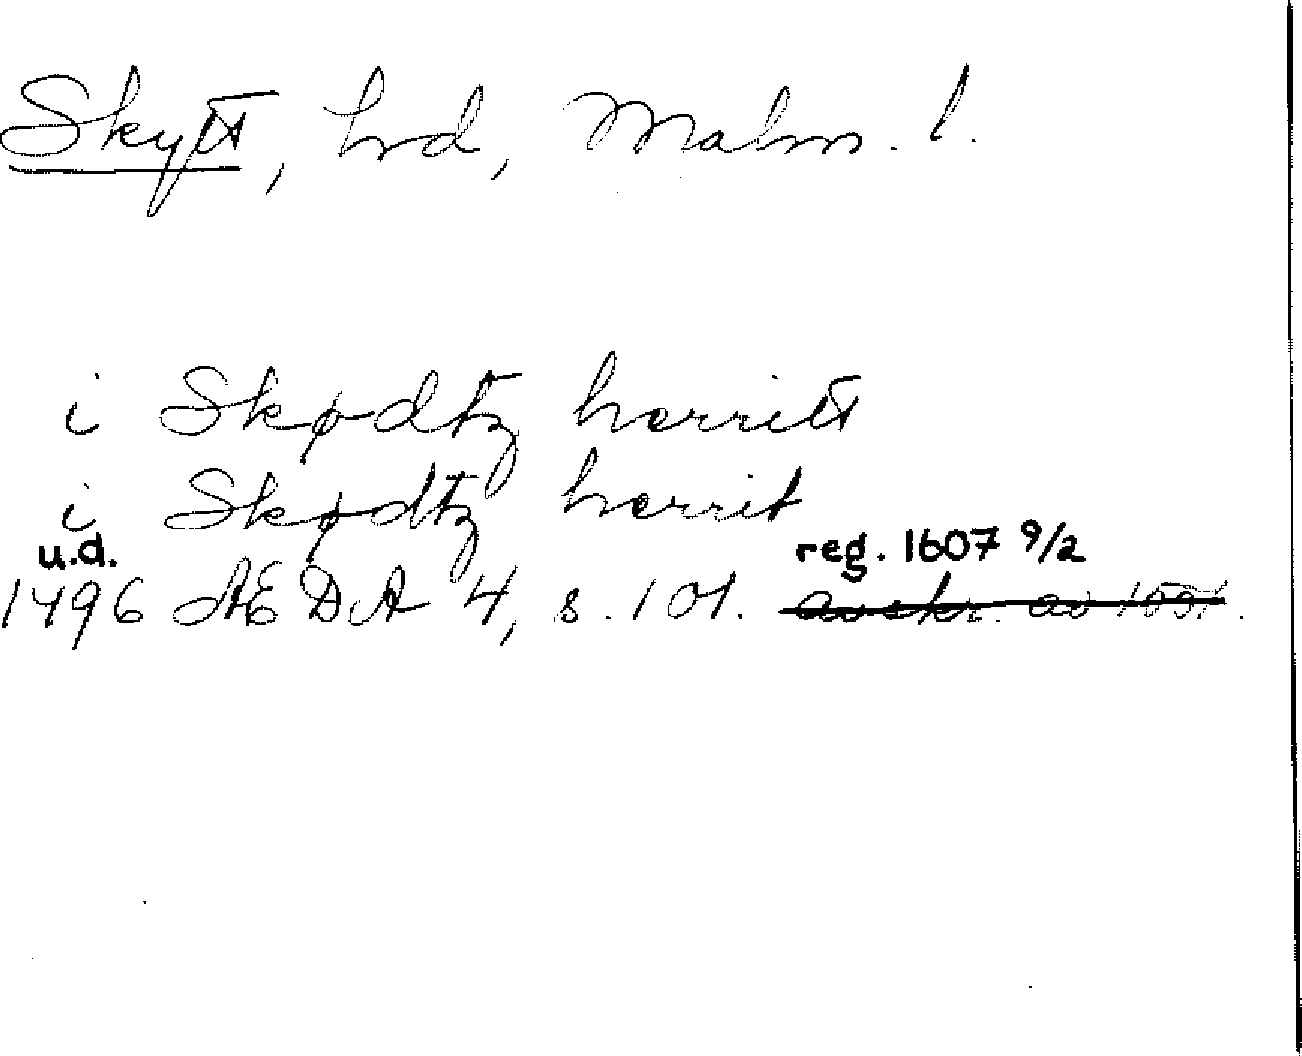 Skytt, hrd, Malm. l.
i Skødtz herritt
i Skødtz herrit
u.d. reg. 1607 9/2
1496 ÆDA 4, s. 101. avskr. av